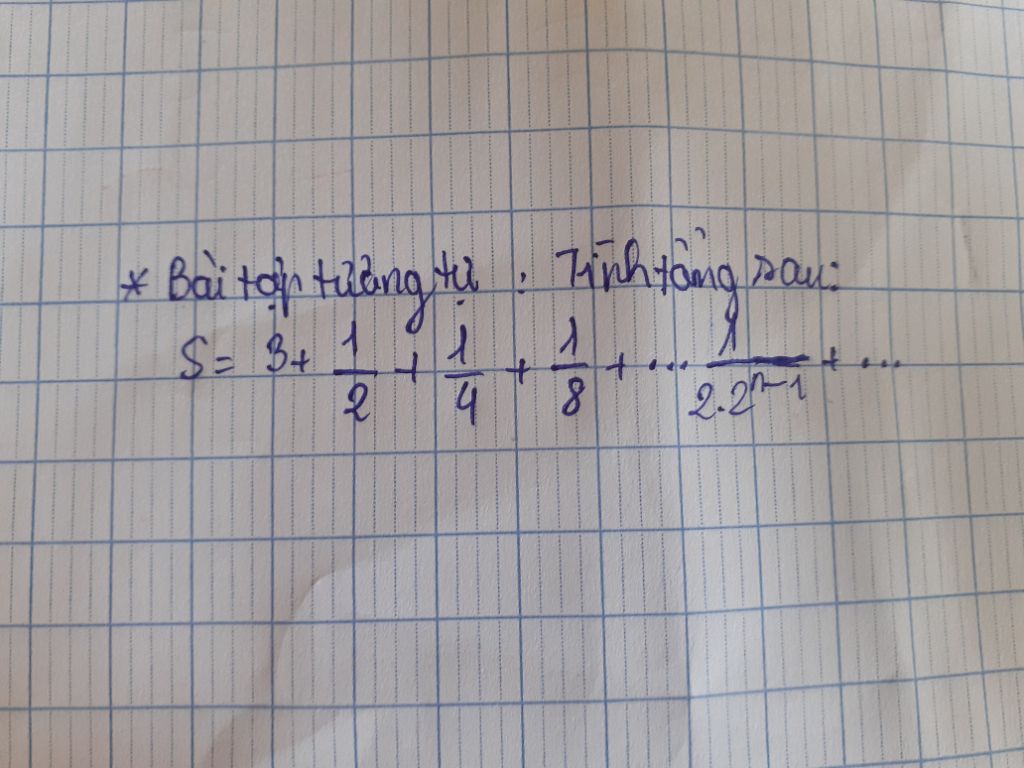 * Bài tập tương tự : Tính tổng sau:
S = 3 + 1/2 + 1/4 + 1/8 + ... 1/2.2^n-1 + ...